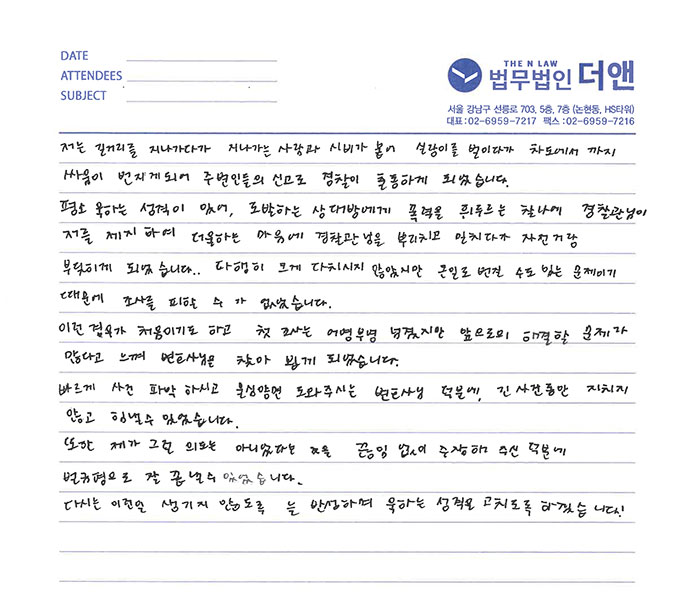 DATE
ATTENDEES
SUBJECT
THE N LAW
법무법인 더앤
서울 강남구 선릉로 703, 5층, 7층 (논현동, HS타워)
대표:02-6959-7217 팩스:02-6959-7216
저는 길거리를 지나가다가 지나가는 사람과 시비가 붙어 실랑이를 벌이다가 차도에서 까지
싸움이 번지게되어 주변인들의 신고로 경찰이 출동하게 되었습니다.
평소 욱하는 성격이 있어, 도발하는 상대방에게 폭력을 휘두르는 찰나에 경찰관님이
저를 제지하여 더욱하는 마음에 경찰관님을 뿌리치고 밀치다가 자전거랑
부딪히게 되었습니다.. 다행히 크게 다치시지 않았지만 큰일로 번질 수도 있는 문제이기
때문에 조사를 피할 수 가 없었습니다.
이런 경우가 처음이기도 하고 첫 조사는 어영부영 넘겼지만 앞으로의 해결할 문제가
많다고 느껴 변호사님을 찾아 뵙게 되었습니다.
빠르게 사건 파악 하시고 물심양면 도와주시는 변호사님 덕분에, 긴 시간동안 지치지
않고 힘낼수 있었습니다.
또한 제가 그런 의도는 아니었다는 것을 끊임 없이 주장해 주신 덕분에
벌금형으로 잘 끝낼수 있었습니다.
다시는 이런일 생기지 않도록 늘 반성하며 욱하는 성격을 고치도록 하겠습니다!